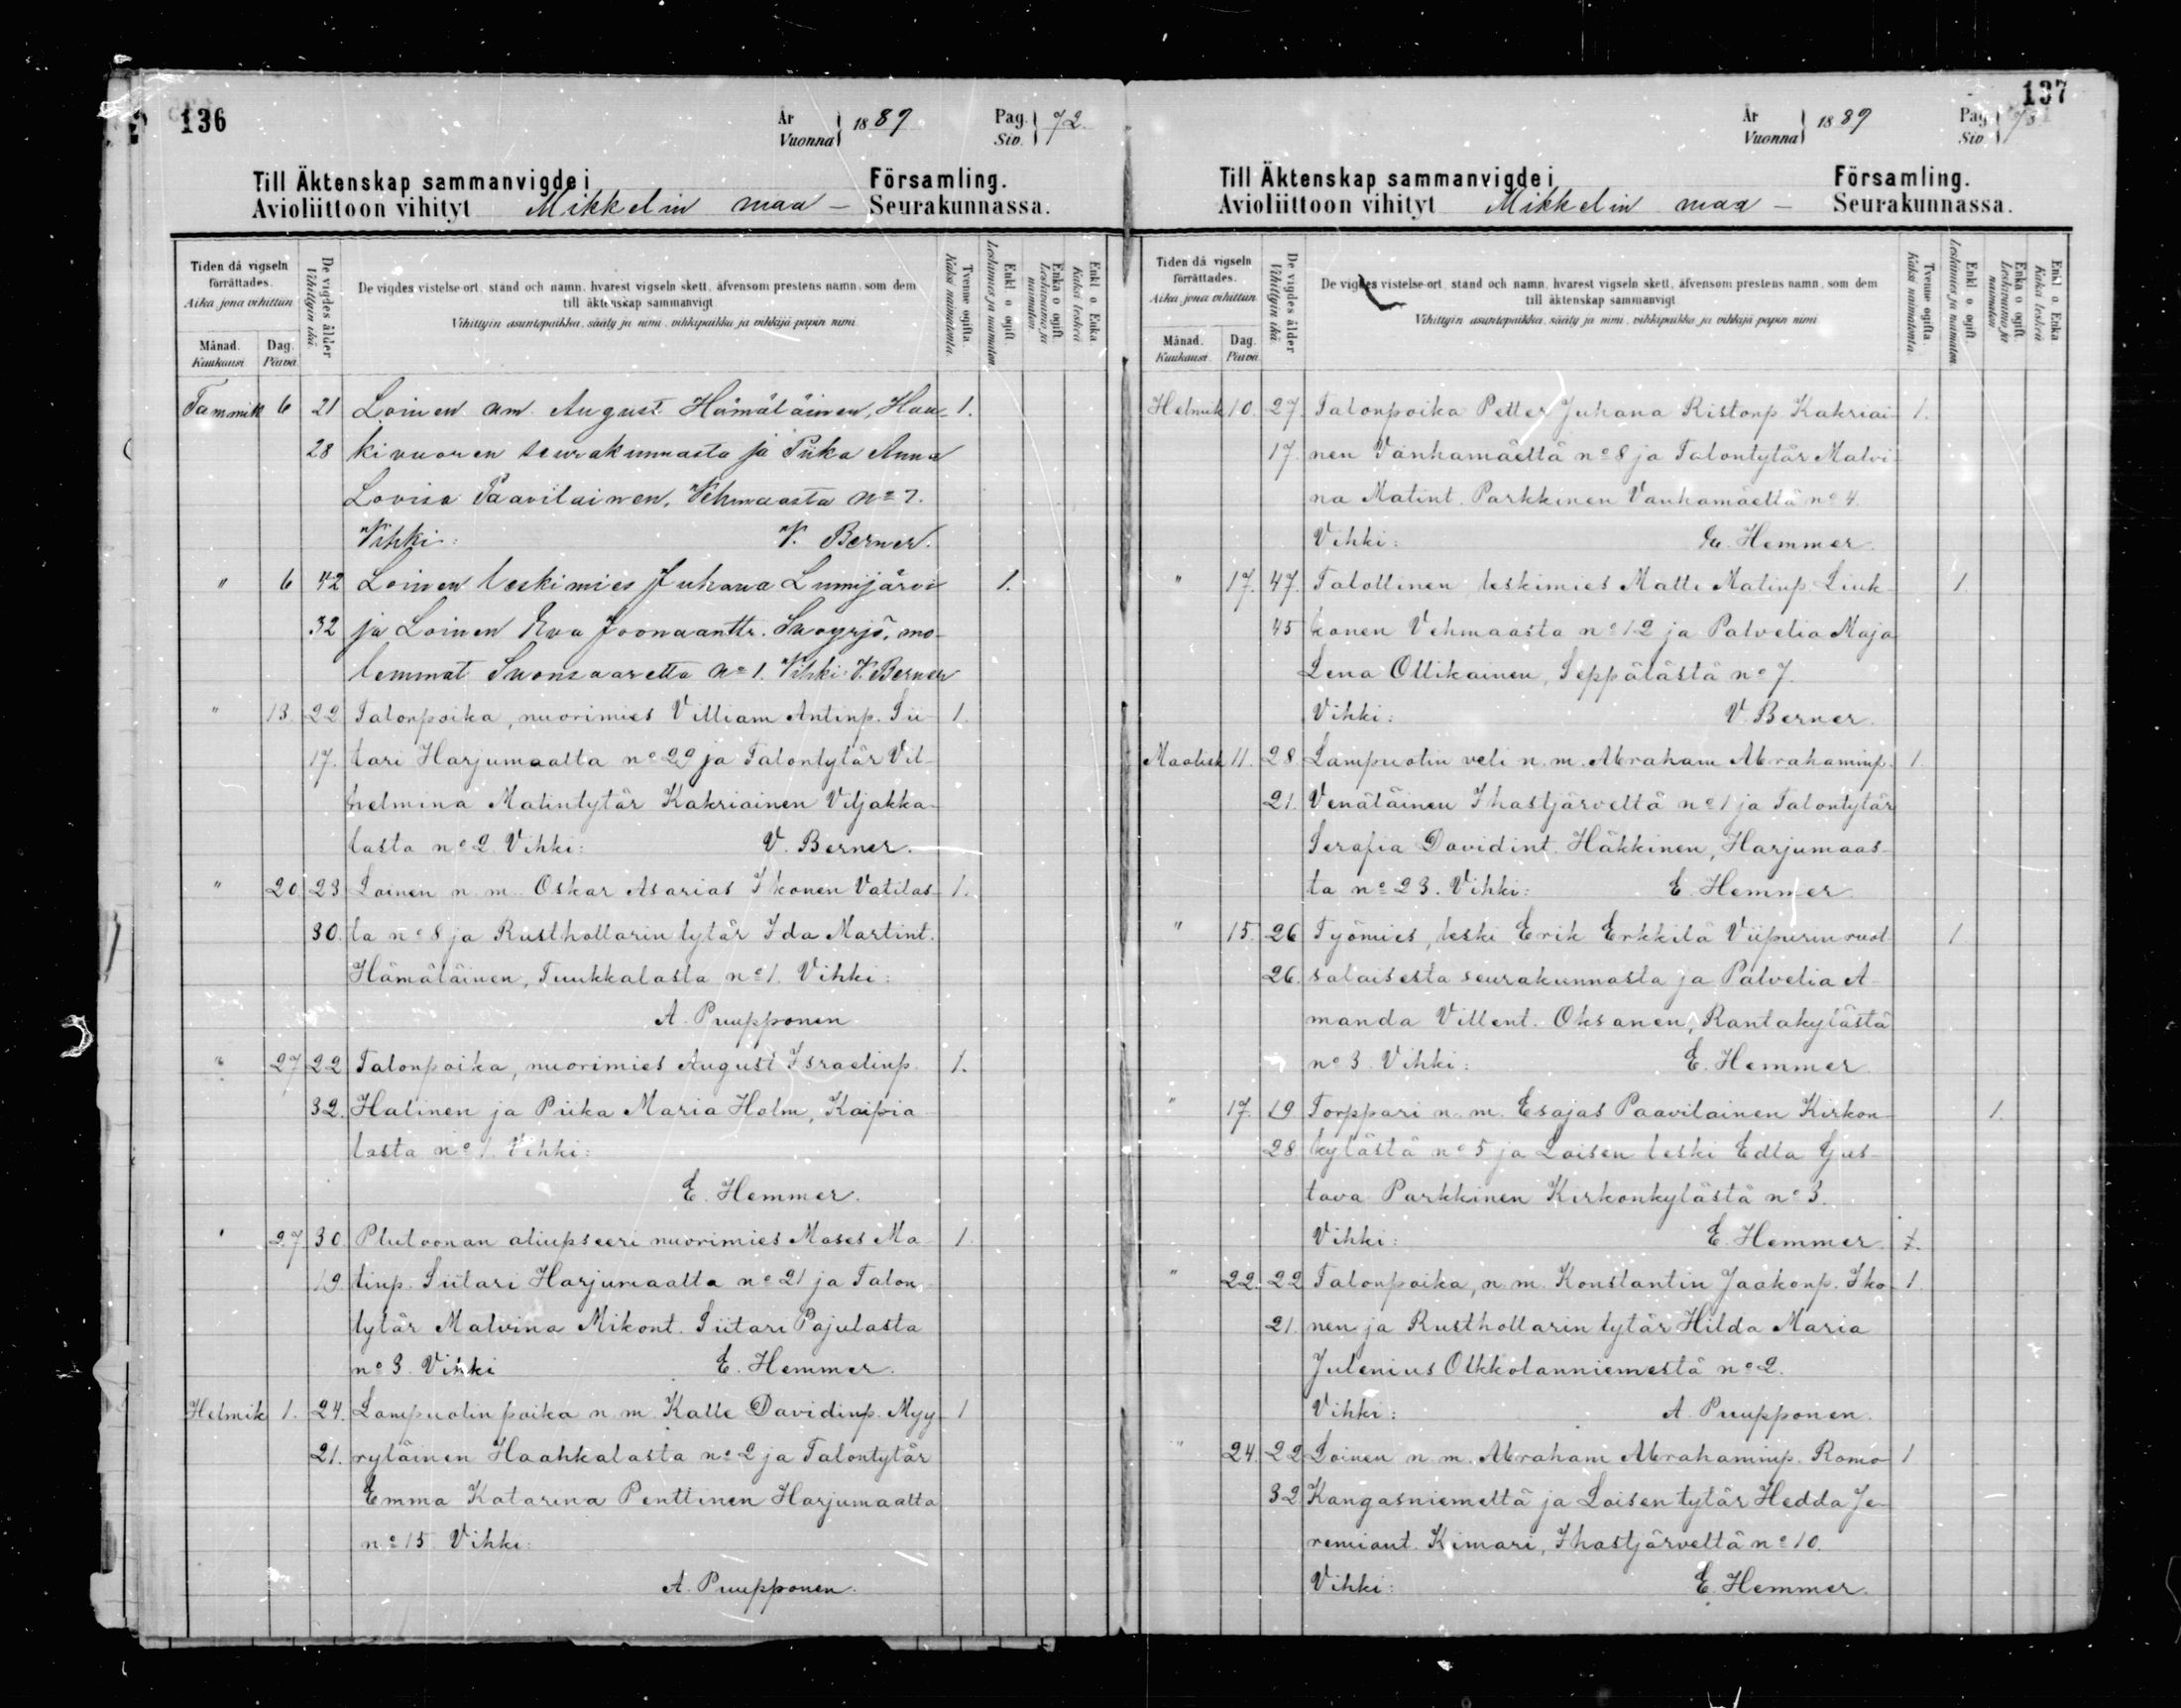 136
År
Vuonna } 1889
Pag.
Siv. } 72.
Till Äktenskap sammanvigde i Församling.
Avioliittoon vihityt Mikkelin maa- Seurakunnassa.
Tiden då vigseln förrättades.
Aika, jona vihittiin
Månad. Kuukausi
Dag. Päivä
De vigdes ålder
Vihittyin ikä.
De vigdes vistelse ort, stånd och namn, hvarest vigseln skett, äfvensom prestens namn, som dem
till äktenskap sammanvigt
Vihittyin asuntopaikka, sääty ja nimi, vihkipaikka ja vihkijä papin nimi
Tvenne ogifta.
Kaksi naimatonta.
Enkl. o. ogift.
Leskimies ja naimaton
Enka o ogift.
Leskivaimo ja naimaton.
Enkl o. Enka
Kaksi leskeä
Tammik 6 21 Loinen nm. August Hämäläinen, Hau- 1.
28 kivuoren seurakunnasta ja Piika Anna
Lovisa Paavilainen, Vehmaasta No 7.
Vihki: V. Berner.
" 6 42 Loinen leskimies Juhana Lumijärvi 1.
32 ja Loinen Eva Joonaantr. mo-
lemmat Suonsaarelta No 1. Vihki: V. Berner
" 13. 22 Talonpoika, nuorimies Villiam Antinp. Sii- 1.
17. tari Harjumaalta no 29 ja Talontytär Vil-
helmina Matintytär Kakriainen Viljakka-
lasta no 2. Vihki: V. Berner.
" 20. 23 Loinen n.m. Oskar Asarias Ikonen Vatilas- 1.
30. ta no 8 ja Rusthollarin tytär Ida Martint.
Hämäläinen, Tuukkalasta no 1. Vihki:
A. Puupponen
" 27 22 Talonpoika, nuorimies August Israelinp. 1.
32. Halinen ja Piika Maria Holm, Kaipia
lasta no 1. Vihki:
E. Hemmer.
" 27 30 Plutoonan aliupseeri nuorimies Moses Ma- 1.
19. tinp. Siitari Harjumaalta no 21 ja Talon
tytär Malvina Mikont. Siitari Pajulasta
no 3. Vihki E. Hemmer.
Helmik 1. 24. Lampuotin poika n.m. Kalle Davidinp. Myy- 1
21. ryläinen Haahkalasta no 2 ja Talontytär
Emma Katarina Penttinen Harjumaalta
no 15. Vihki:
A. Puupponen.
137
År
Vuonna } 1889
Pag
Siv. } 73
Till Äktenskap sammanvigde i Församling.
Avioliittoon vihityt Mikkelin maa- Seurakunnassa.
Tiden då vigseln förrättades.
Aika, jona vihittiin
Månad. Kuukausi.
Dag. Päivä
De vigdes ålder
Vihittyin ikä.
De vigdes vistelse ort, stånd och namn, hvarest vigseln skett, äfvensom prestens namn, som dem
till äktenskap sammanvigt
Vihittyin asuntopaikka, sääty ja nimi, vihkipaikka ja vihkijä papin nimi
Tvenne ogifta.
Kaksi naimatonta.
Enkl. o. ogift.
Leskimies ja naimaton
Enka o ogift.
Leskivaimo ja naimaton
Enkl o. Enka
Kaksi leskeä
Helmik 10. 27 Talonpoika Petter Juhana Ristonp. Kakriai- 1.
17. nen Vanhamäeltä no 8 ja Talontytär Malvi-
na Matint. Parkkinen Vanhamäeltä no 4.
Vihki: E. Hemmer.
" 17. 47. Talollinen leskimies Matti Matinp. Liuk- 1.
45 konen Vehmaasta no 12 ja Palvelia Maja
Lena Ollikainen, Seppälästä no 7.
Vihki: V. Berner.
Maalisk 11. 28. Lampuotin veli n.m. Abraham Abrahaminp. 1.
21. Venäläinen Ihastjärveltä no 1 ja Talontytär
Serafia Davidint. Häkkinen, Harjumaas-
ta no 23. Vihki: E. Hemmer.
" 15. 26 Työmies, leski Erik Erkkilä Viipurin ruot 1
26. salaisesta seurakunnasta ja Palvelia A-
manda Villent. Oksanen, Rantakylästä
no 3. Vihki: E. Hemmer
" 17. 19 Torppari n.m. Esajas Paavilainen Kirkon- 1.
28 kylästä no 5 ja Loisen leski Edla Gus-
tava Parkkinen Kirkonkylästä no 3.
Vihki: E. Hemmer.
" 22. 22 Talonpoika, n.m. Konstantin Jaakonp. Iko- 1.
21. nen ja Rusthollarin tytär Hilda Maria
Julenius Olkkolanniemestä no 2.
Vihki: A. Puupponen.
" 24. 22 Loinen n.m. Abraham Abrahaminp. Romo 1
32 Kangasniemeltä ja Loisen tytär Hedda Je-
remiant. Kimari, Ihastjärveltä no 10.
Vihki: E. Hemmer.